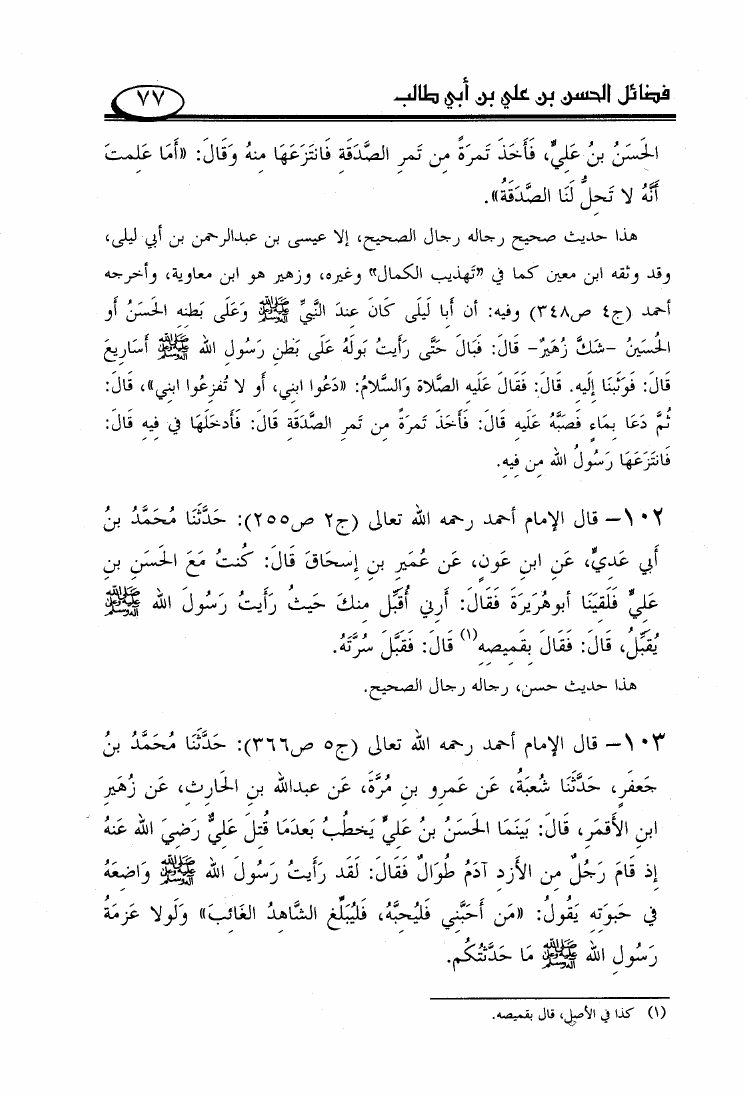 فضائل الحسن بن علي بن أبي طالب
٧٧
الحَسَنُ بنُ عَلِيٍّ، فَأَخَذَ تَمرَةً مِن تَمرِ الصَّدَقَةِ فَانتَزَعَهَا مِنهُ وَقَالَ: «أَمَا عَلِمتَ
أَنَّهُ لا تَحِلُّ لَنَا الصَّدَقَةُ».
هذا حديث صحيح رجاله رجال الصحيح، إلا عيسى بن عبدالرحمن بن أبي ليلى،
وقد وثقه ابن معين كما في «تهذيب الكمال» وغيره، وزهير هو ابن معاوية، وأخرجه
أحمد (ج٤ ص٣٤٨) وفيه: أن أبا لَيلَى كَانَ عِندَ النَّبِيِّ ﷺ وَعَلَى بَطنِهِ الحَسَنُ أَو
الحُسَينُ -شَكَّ زُهَيرٌ- قَالَ: فَبَالَ حَتَّى رَأَيتُ بَولَهُ عَلَى بَطنِ رَسُولِ الله ﷺ أَسَارِيعَ
قَالَ: فَوَثَبنَا إِلَيهِ. قَالَ: فَقَالَ عَلَيهِ الصَّلاة وَالسَّلامُ: «دَعُوا ابنِي، أَو لا تُفزِعُوا ابنِي»، قَالَ:
ثُمَّ دَعَا بِمَاءٍ فَصَبَّهُ عَلَيهِ قَالَ: فَأَخَذَ تَمرَةً مِن تَمرِ الصَّدَقَةِ قَالَ: فَأَدخَلَهَا فِي فِيهِ قَالَ:
فَانتَزَعَهَا رَسُولُ الله مِن فِيهِ.
١٠٢- قال الإمام أحمد رحمه الله تعالى (ج٢ ص٢٥٥): حَدَّثَنَا مُحَمَّدُ بنُ
أَبِي عَدِيٍّ، عَنِ ابنِ عَونٍ، عَن عُمَيرِ بنِ إِسحَاقَ قَالَ: كُنتُ مَعَ الحَسَنِ بنِ
عَلِيٍّ فَلَقِيَنَا أبوهُرَيرَةَ فَقَالَ: أَرِنِي أُقَبِّل مِنكَ حَيثُ رَأَيتُ رَسُولَ الله ﷺ
يُقَبِّلُ، قَالَ: فَقَالَ بِقَمِيصِهِ(١) قَالَ: فَقَبَّلَ سُرَّتَهُ.
هذا حديث حسن، رجاله رجال الصحيح.
١٠٣- قال الإمام أحمد رحمه الله تعالى (ج٥ ص٣٦٦): حَدَّثَنَا مُحَمَّدُ بنُ
جَعفَرٍ، حَدَّثَنَا شُعبَةُ، عَن عَمرِو بنِ مُرَّةَ، عَن عبدالله بنِ الحَارِثِ، عَن زُهَيرِ
ابنِ الأَقمَرِ، قَالَ: بَينَمَا الحَسَنُ بنُ عَلِيٍّ يَخطُبُ بَعدَمَا قُتِلَ عَلِيٌّ رَضِيَ الله عَنهُ
إِذ قَامَ رَجُلٌ مِنَ الأَزدِ آدَمُ طُوَالٌ فَقَالَ: لَقَد رَأَيتُ رَسُولَ الله ﷺ وَاضِعَهُ
فِي حَبوَتِهِ يَقُولُ: «مَن أَحَبَّنِي فَليُحِبَّهُ، فَليُبَلِّغِ الشَّاهِدُ الغَائِبَ» وَلَولا عَزمَةُ
رَسُولِ الله ﷺ مَا حَدَّثتُكُم.
(١) كذا في الأصل، قال بقميصه.